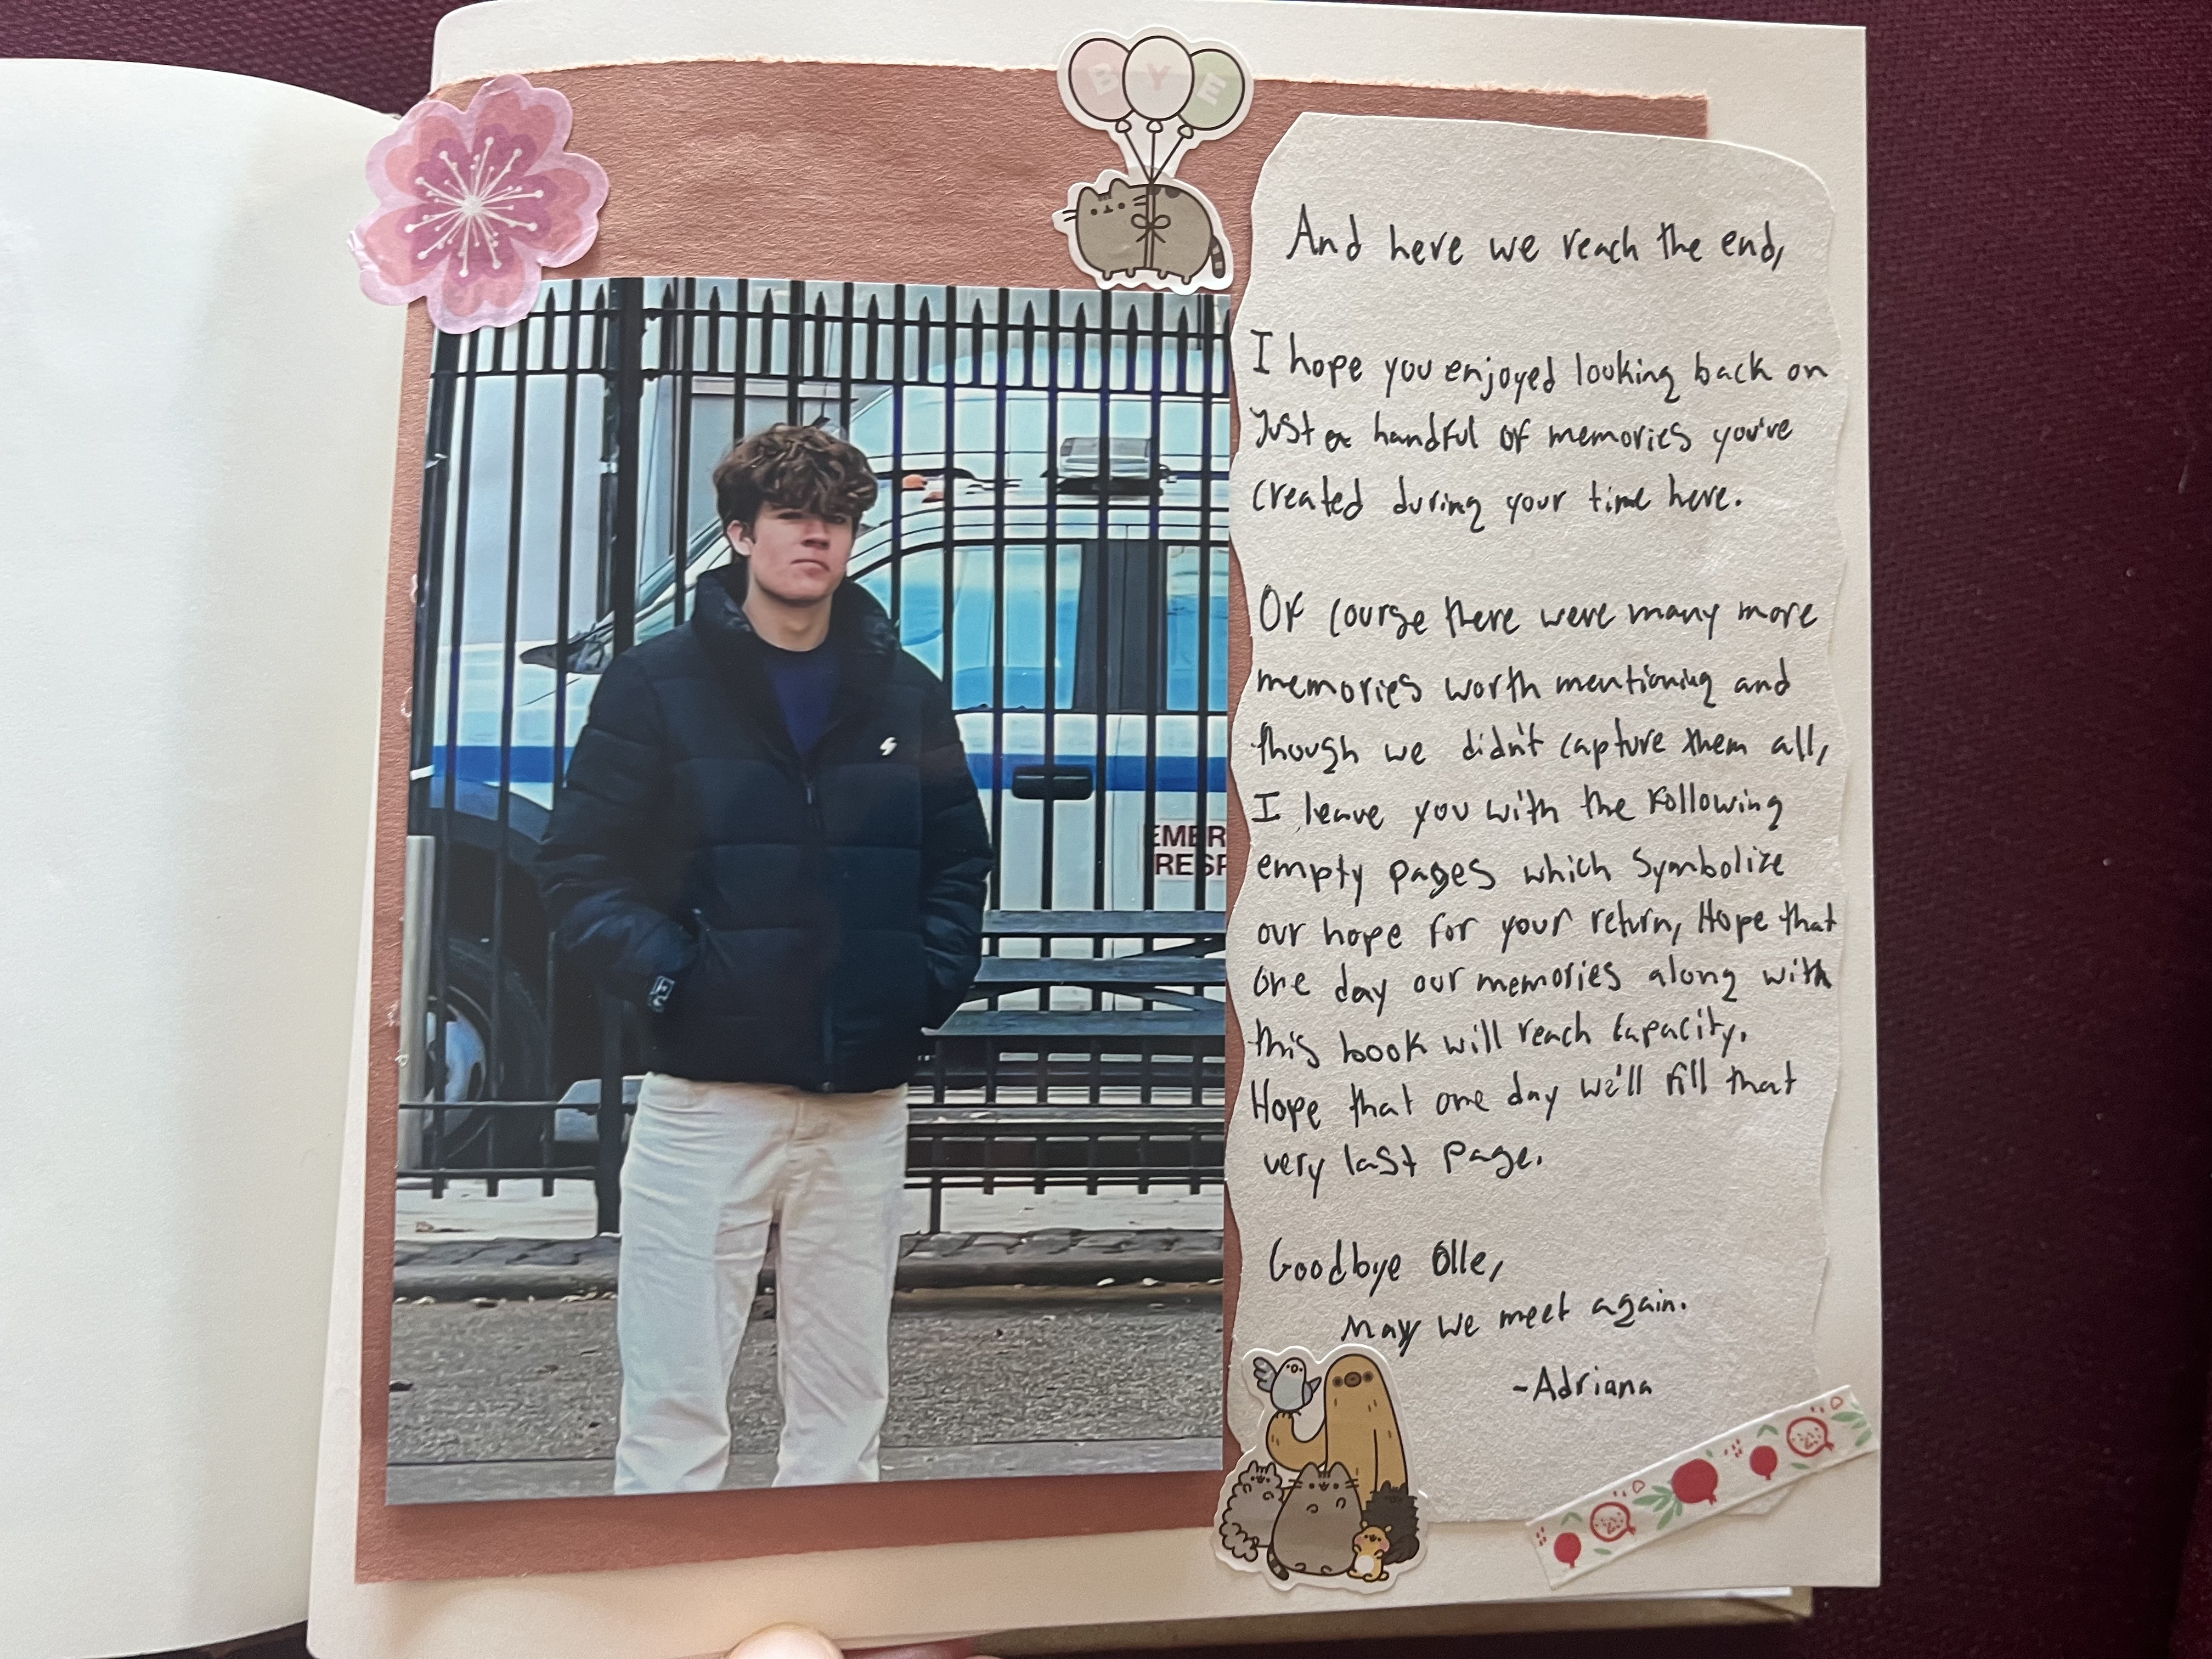 BYE
And here we reach the end,
I hope you enjoyed looking back on
Just a handful of memories you've
created during your time here.
Of course there were many more
memories worth mentioning and
though we didn't capture them all,
I leave you with the following
empty pages which Symbolize
our hope for your return, Hope that
One day our memories along with
this book will reach capacity.
Hope that one day we'll fill that
very last page.
Goodbye Olle,
May we meet again.
-Adriana
EMER
RESP